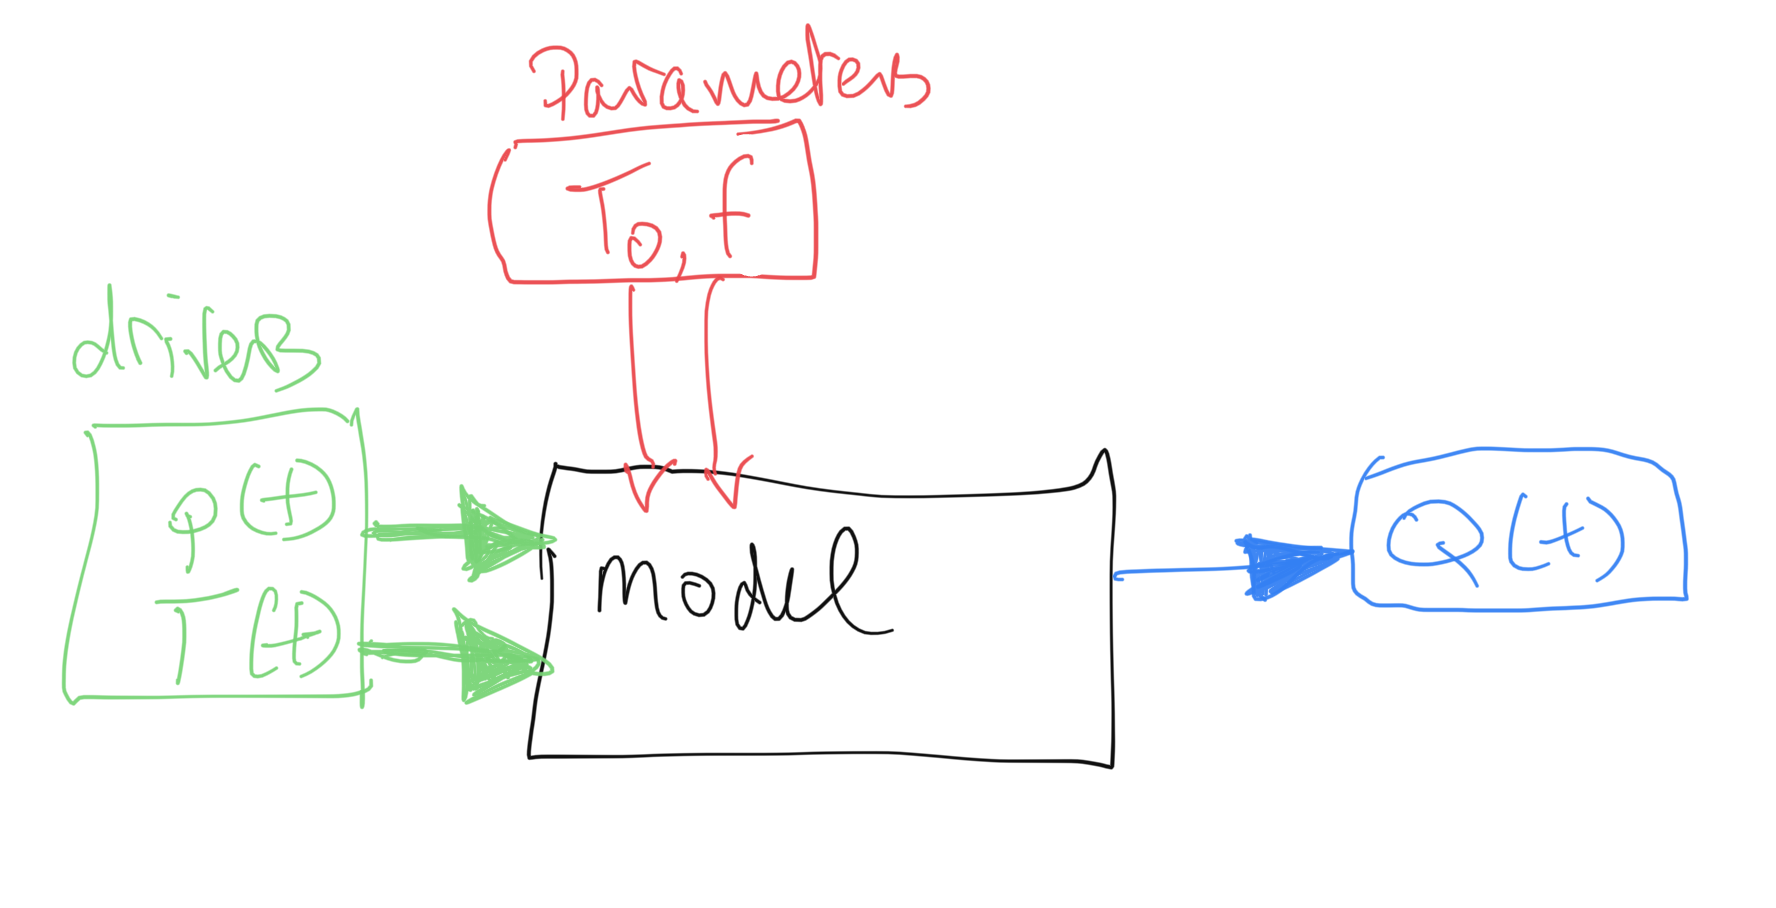 Parameters
T₀, f
drivers
p(t)
T(t)
model
Q(t)